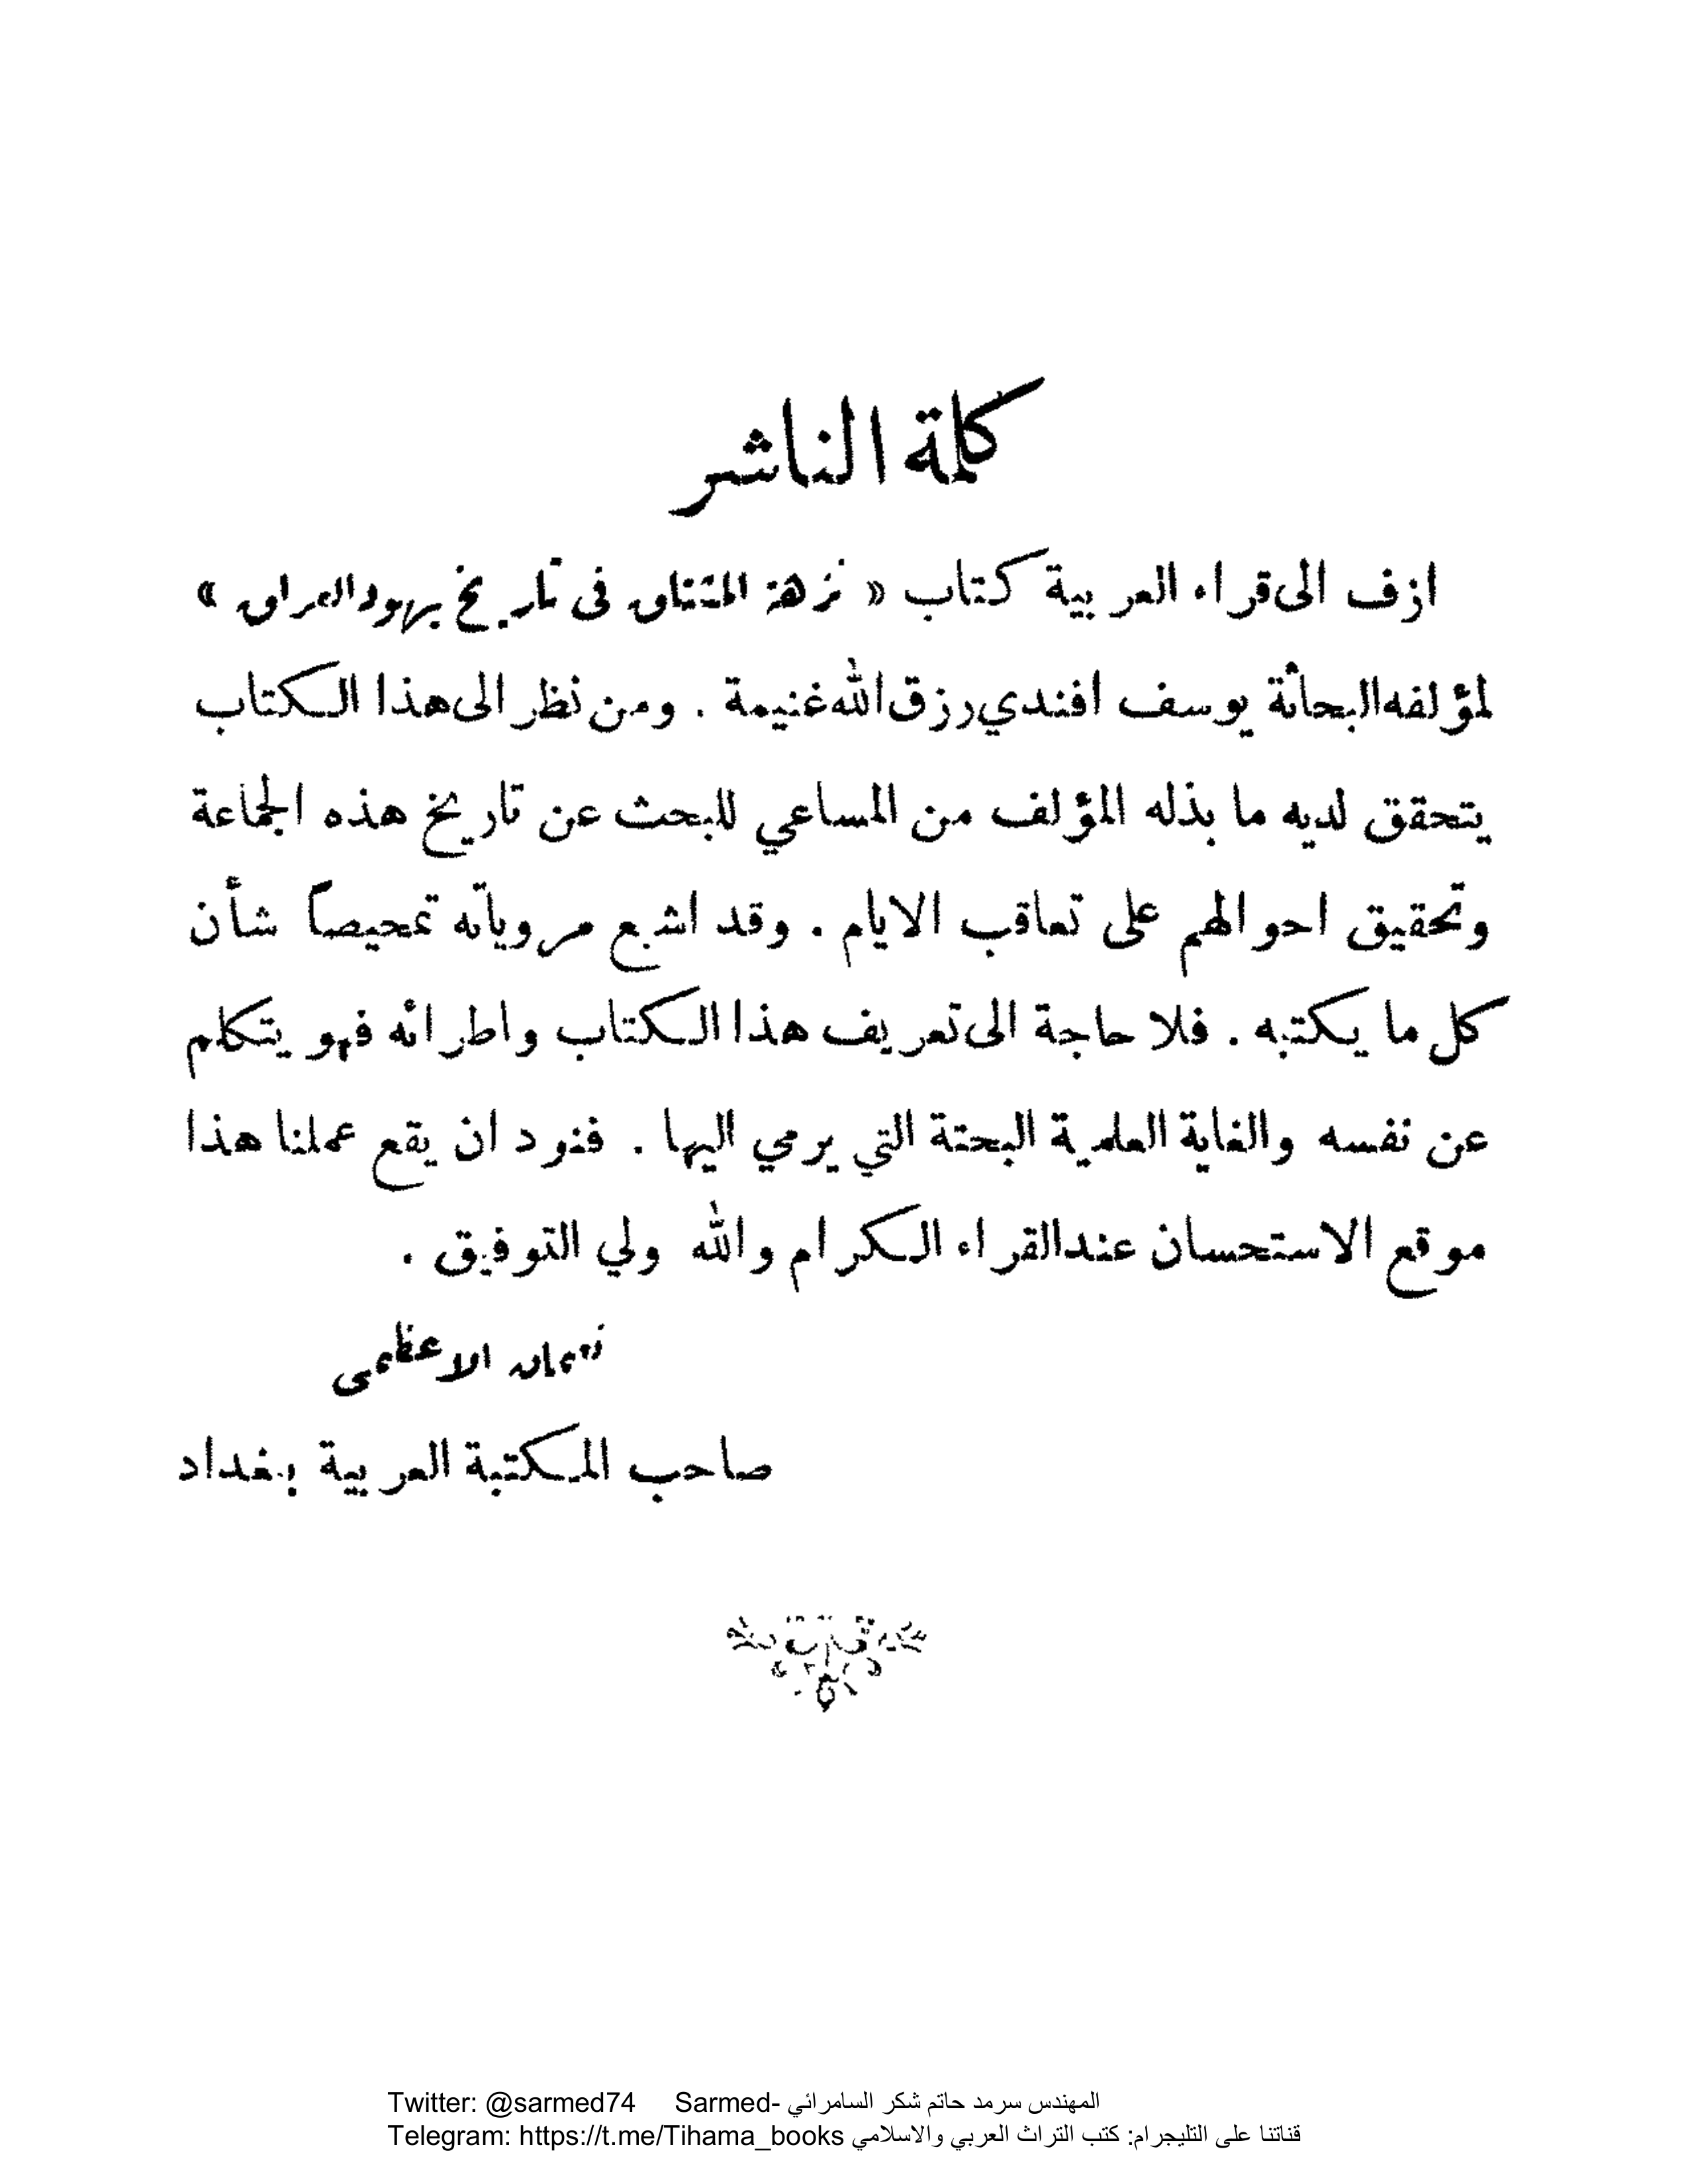 كلمة الناشر
ازف الى قراء العربية كتاب « نزهة المشتاق فى تاريخ يهود العراق »
لمؤلفه البحاثة يوسف افندي رزق الله غنيمة . ومن نظر الى هذا الكتاب
يتحقق لديه ما بذله المؤلف من المساعي للبحث عن تاريخ هذه الجماعة
وتحقيق احوالهم على تعاقب الايام . وقد اشبع مروياته تمحيصاً شأن
كل ما يكتبه . فلا حاجة الى تعريف هذا الكتاب واطرائه فهو يتكلم
عن نفسه والغاية العلمية البحتة التي يرمي اليها . فنود ان يقع عملنا هذا
موقع الاستحسان عند القراء الكرام والله ولي التوفيق .
نعمان الاعظمى
صاحب المكتبة العربية بغداد
Twitter: @sarmed74 Sarmed- المهندس سرمد حاتم شكر السامرائي
Telegram: https://t.me/Tihama_books قناتنا على التليجرام: كتب التراث العربي والاسلامي